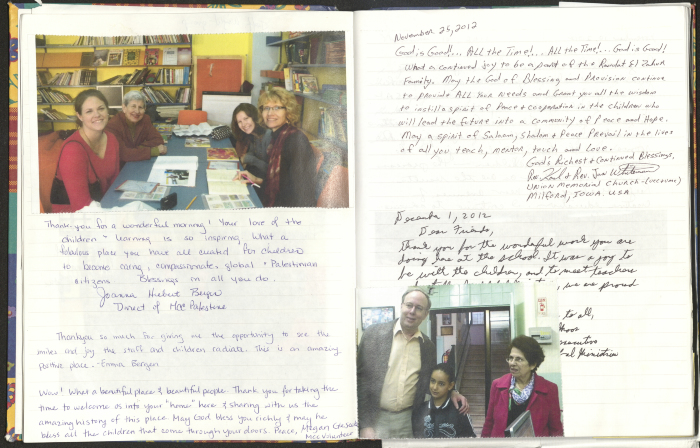 Thank you for a wonderful morning! Your love of the
children + learning is so inspiring. What a
fabulous place you have all created for children
to become caring, compassionate, global + Palestinian
citizens. Blessings in all you do.
Joanna Hiebert Bergen
Director of MCC Palestine
Thankyou so much for giving me the opportunity to see the
smiles and joy the staff and children radiate. This is an amazing
positive place. - Emma Bergen
Wow! What a beautiful place & beautiful people. Thank you for taking the
time to welcome us into your "home" here & sharing with us the
amazing history of this place. May God bless you richly & may he
bless all the children that come through your doors. Peace, Megan
MCC Volunteer
November 25, 2012
God is Good!... All the Time!... All the Time!... God is Good!
What a continued joy to be a part of the Rawdat El Zuhur
Family. May the God of Blessing and Provision continue
to provide ALL your Needs and Grant you all the wisdom
to instill a spirit of Peace + cooperation in the children who
will lead the future into a community of Peace and Hope.
May a spirit of Salaam, Shalom + Peace Prevail in the lives
of all you teach, mentor, touch and love.
God's Richest + Continued Blessings,
Rev. + Rev. Jan
Union Memorial Church
Milford, Iowa. USA
December 1, 2012
Dear Friends,
Thank you for the wonderful work you are
doing here at the school. It was a joy to
be with the children, and to meet teachers
we are proud
to all,